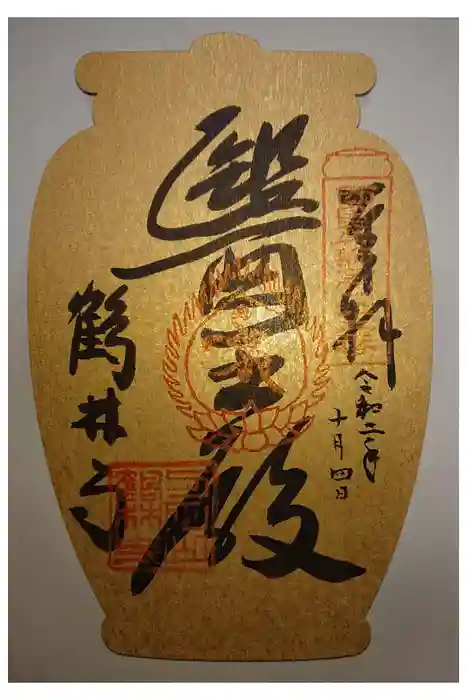 奉拝
令和二年
十月四日
醫王殿
鶴林寺